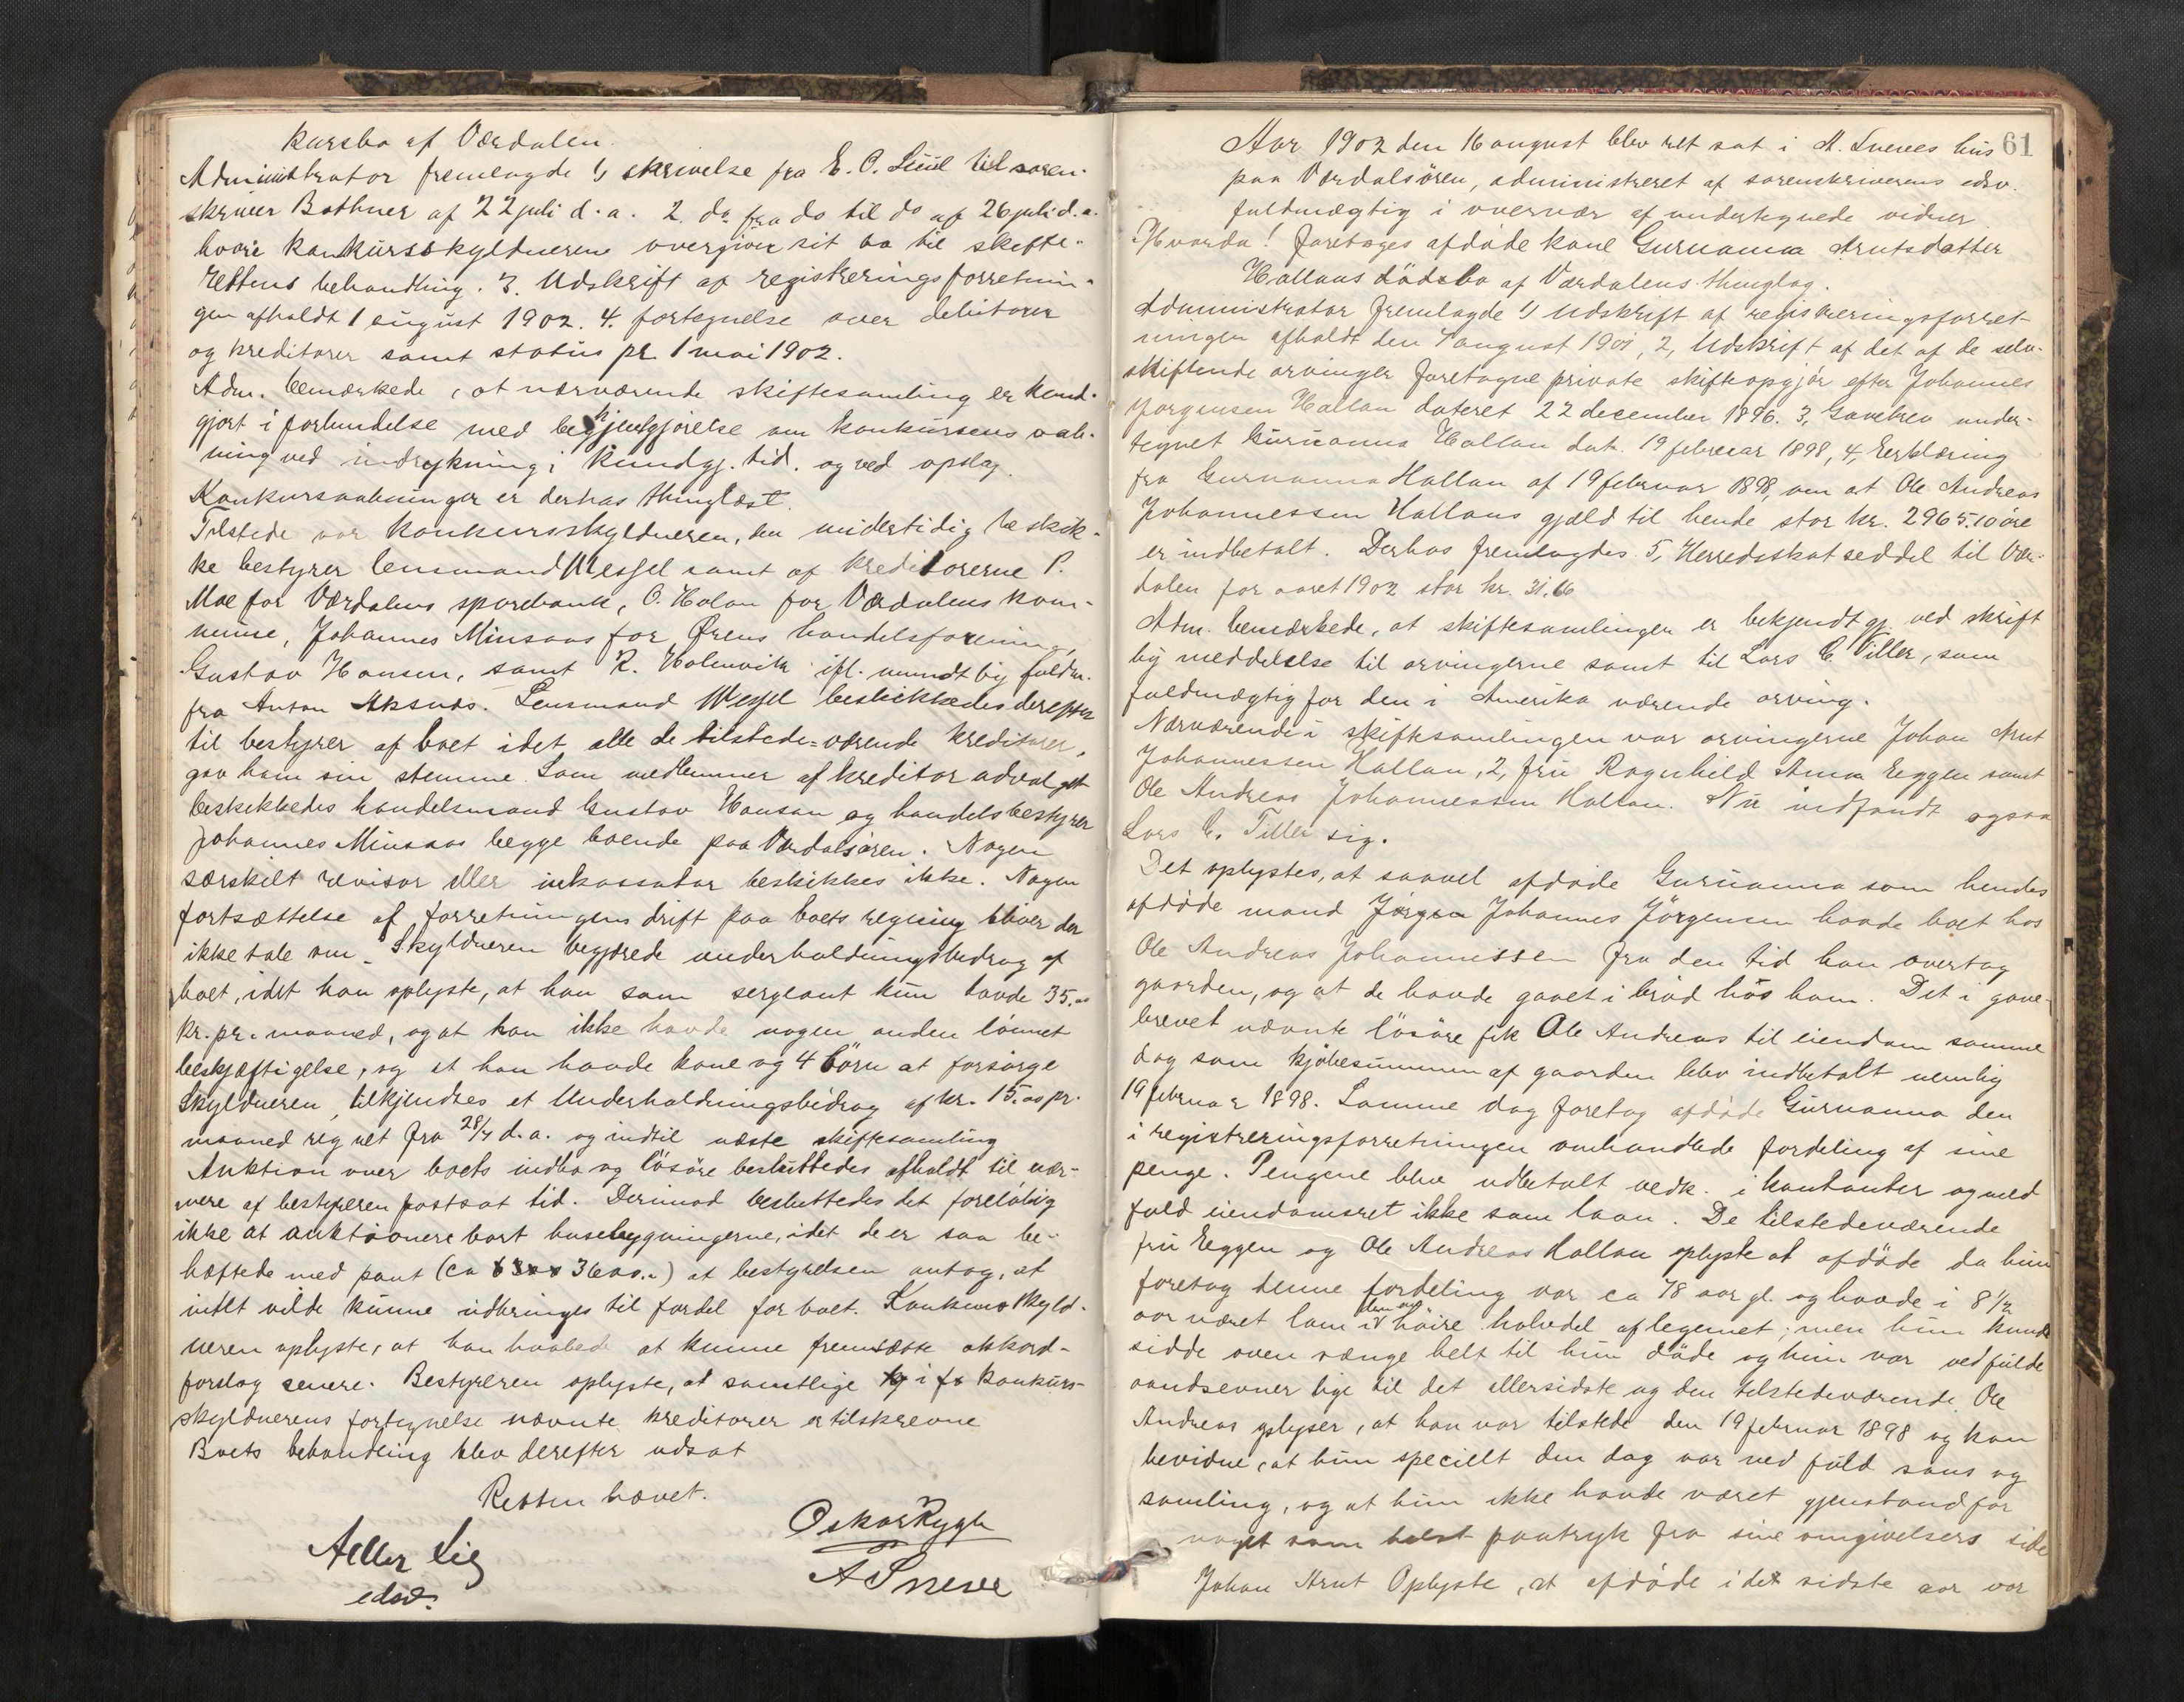 kursbo af Værdalen.
Administrator fremlagde 1, skrivelse fra E. O. Suul til soren-
skriver Bothner af 22 juli d. a. 2. do fra do til do af 26 juli d. a.
hvori konkursskyldneren overgiver sit bo til skifte-
rettens behandling. 3. Udskrift af registreringsforretnin-
gen afholdt 1 august 1902. 4. fortegnelse over debitorer
og kreditorer samt status pr. 1 mai 1902.
Adm. bemærkede, at nærværende skiftesamling er kund-
gjort i forbindelse med bekjendtgjørelse om konkursens aab-
ning ved indrykning i kundgj. tid. og ved opslag.
Konkursaabningen er derhos thinglæst.
Tilstede var konkursskyldneren, den midlertidig beskik-
ke bestyrer lensmand Wessel samt af kreditorerne P.
Moe for Værdalens sparebank, O. Holan for Værdalens kom-
mune, Johannes Minsaas for Ørens handelsforening,
Gustav Hansen, samt R. Holmvik ifl. mundtlig fuldm.
fra Anton Aksnæs. Lensmand Wessel beskikkedes derefter
til bestyrer af boet idet alle de tilstede-værende kreditorer,
gav ham sin stemme. Som medlemmer af kreditorudvalget
beskikkedes handelsmand Gustav Hansen og handelsbestyrer
Johannes Minsaas begge boende paa Værdalsøren. Nogen
særskilt revisor eller inkassator beskikkes ikke. Nogen
fortsættelse af forretningens drift paa boets regning bliver der
ikke tale om. Skyldneren begjærede underholdningsbidrag af
boet, idet han oplyste, at han som sergeant kun havde 35.00
kr. pr. maaned, og at han ikke havde nogen anden lønnet
beskjæftigelse, og at han havde kone og 4 børn at forsørge
Skyldneren tilkjendtes et Underholdningsbidrag af kr. 15.00 pr.
maaned regnet fra 28/7 d. a. og indtil næste skiftesamling
Auktion over boets indbo og løsøre besluttedes afholdt til nær-
mere af bestyreren fastsat tid. Derimod besluttedes det foreløbig
ikke at auktionere bort husebygningerne, idet de er saa be-
hæftede med pant (ca 3600.-) at bestyrelsen antog, at
intet vilde kunne indbringes til fordel for boet. Konkursskyld-
neren oplyste, at han haabede at kunne fremsætte akkord-
forslag senere. Bestyreren oplyste, at samtlige i konkurs-
skyldnerens fortegnelse nævnte kreditorer er tilskrevne
Boets behandling blev derefter udsat
Retten hævet.
Oskar Rygh
A Sneve
edsv.
61
Aar 1902 den 16 august blev ret sat i A. Sneves hus
paa Værdalsøren, administreret af sorenskriverens edsv.
fuldmægtig i overvær af undertegnede vidner
Hvorda! foretages afdøde kone Guruanna Arntsdatter
Hallans dødsbo af Værdalens thinglag.
Administrator fremlagde 1, Udskrift af registreringsforret-
ningen afholdt den 7 august 1901, 2, Udskrift af det af de selv-
skiftende arvinger foretagne private skifteopgjør efter Johannes
Jørgensen Hallan dateret 22 december 1896. 3, Gavebrev under-
tegnet Guruanna Hallan dat. 19 februar 1898, 4, Erklæring
fra Guruanna Hallan af 19 februar 1898, om at Ole Andreas
Johannessen Hallans gjæld til hende stor kr. 2965.10 øre
er indbetalt. Derhos fremlagdes 5, Herredsskatseddel til Vær-
dalen for aaret 1902 stor kr. 31.66
Adm. bemærkede, at skiftesamlingen er bekjendtgj. ved skrift
lig meddelelse til arvingerne samt til Lars E. Tiller, som
fuldmægtig for den i Amerika værende arving.
Nærværende i skiftesamlingen var arvingerne Johan Arnt
Johannessen Hallan, 2, fru Ragnhild Anna Eggen samt
Ole Andreas Johannessen Hallan. Nu indfandt ogsaa
Lars E. Tiller sig.
Det oplystes, at saavel afdøde Guruanna som hendes
afdøde mand Jørgen Johannes Jørgensen havde boet hos
Ole Andreas Johannessen fra den tid han overtog
gaarden, og at de havde gaaet i brød hos ham. Det i gave-
brevet nævnte løsøre fik Ole Andreas til eiendom samme
dag som kjøbesummen af gaarden blev indbetalt nemlig
19 februar 1898. Samme dag foretog afdøde Guruanna den
i registreringsforretningen omhandlede fordeling af sine
penge. Pengene blev udbetalt vedk. i kontanter og med
fuld eiendomsret ikke som laan. De tilstedeværende
fru Eggen og Ole Andreas Hallan oplyste at afdøde da hun
foretog denne fordeling var ca 78 aar gl. og havde i 8 1/2
aar været lam i høire halvdel af legemet; men hun kunde
sidde oven senge helt til hun døde og hun var ved fulde
aandsevner lige til det allersidste og den tilstedeværende Ole
Andreas oplyser, at han var tilstede den 19 februar 1898 og kan
bevidne, at hun specielt den dag var ved fuld sans og
samling, og at hun ikke havde været gjenstand for
noget som helst paatryk fra sine omgivelsers side
Johan Arnt Oplyste, at afdøde i det sidste aar var